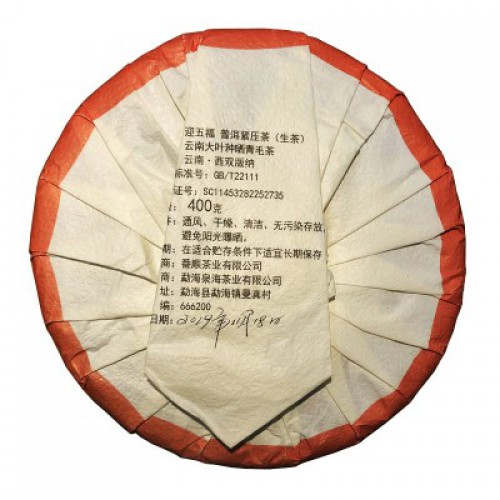 迎五福 普洱紧压茶（生茶）
云南大叶种晒青毛茶
云南·西双版纳
标准号: GB/T22111
证号: SC11453282252735
: 400克
件: 通风、干燥、清洁、无污染存放,
避免阳光曝晒。
期: 在适合贮存条件下适宜长期保存
商: 番顺茶业有限公司
商: 勐海泉海茶业有限公司
勐海县勐海镇曼真村
编: 666200
日期: 2019年11月18日